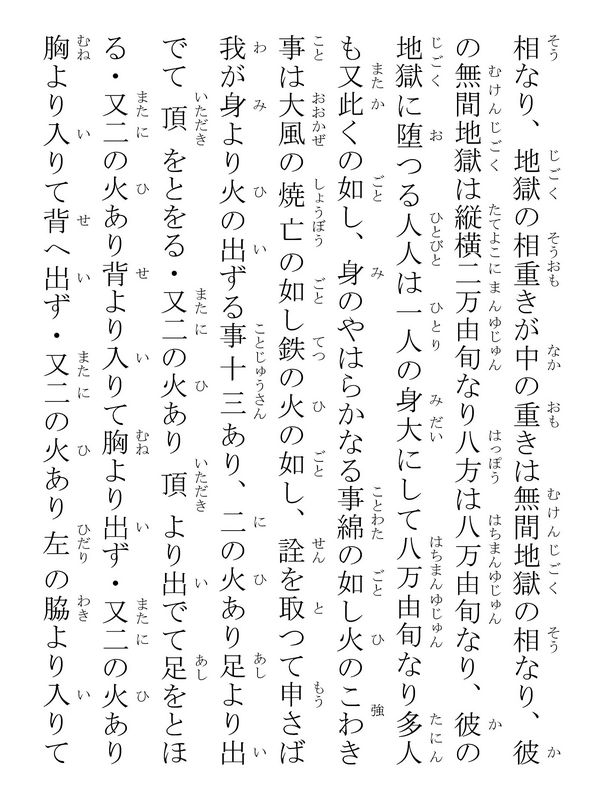 相なり、地獄の相重きが中の重きは無間地獄の相なり、彼
の無間地獄は縦横二万由旬なり八方は八万由旬なり、彼の
地獄に堕つる人人は一人の身大にして八万由旬なり多人
も又此くの如し、身のやはらかなる事綿の如し火のこわき
事は大風の焼亡の如し鉄の火の如し、詮を取つて申さば
我が身より火の出ずる事十三あり、二の火あり足より出
でて頂をとをる・又二の火あり頂より出でて足をとほ
る・又二の火あり背より入りて胸より出ず・又二の火あり
胸より入りて背へ出ず・又二の火あり左の脇より入りて